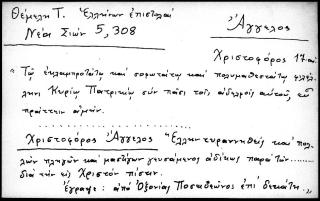 Θέμελη Τ. Ἑλλήνων ἐπιστολαί
Νέα Σιών 5, 308
Ἄγγελος
Χριστοφόρος 17 αι.
"Τῷ ἐκλαμπροτάτῳ καί σοφωτάτῳ καί πολυμαθεστάτῳ φιλέλ-
ληνι Κυρίῳ Πατρικίῳ σύν πᾶσι τοῖς ἀδελφοῖς αὐτοῦ, εὖ
πράττειν
Χριστοφόρος Ἄγγελος "Ἕλλην τυραννηθείς καί πολ-
λῶν πληγῶν καί μαστίγων γευσάμενος ἀδίκως παρά τῶν......
διά τήν εἰς Χριστόν πίστιν.
Ἔγραφε: ἀπό Ὀξονίας Ποσειδεῶνος ἐπί δεκάτῃ."